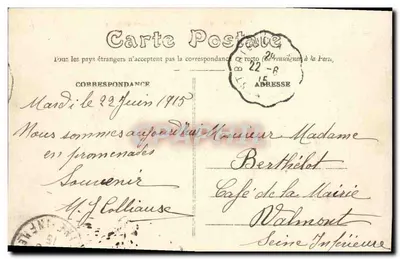 Carte Postale
Tous les pays étrangers n'acceptent pas la correspondance au recto
CORRESPONDANCE
ADRESSE
22-6
15
Mardi le 22 Juin 1915
Nous sommes aujourd'hui
en promenades
Souvenir
M. J Colliause
Monsieur Madame
Berthélot
Café de la Mairie
Valmont
Seine Inférieure